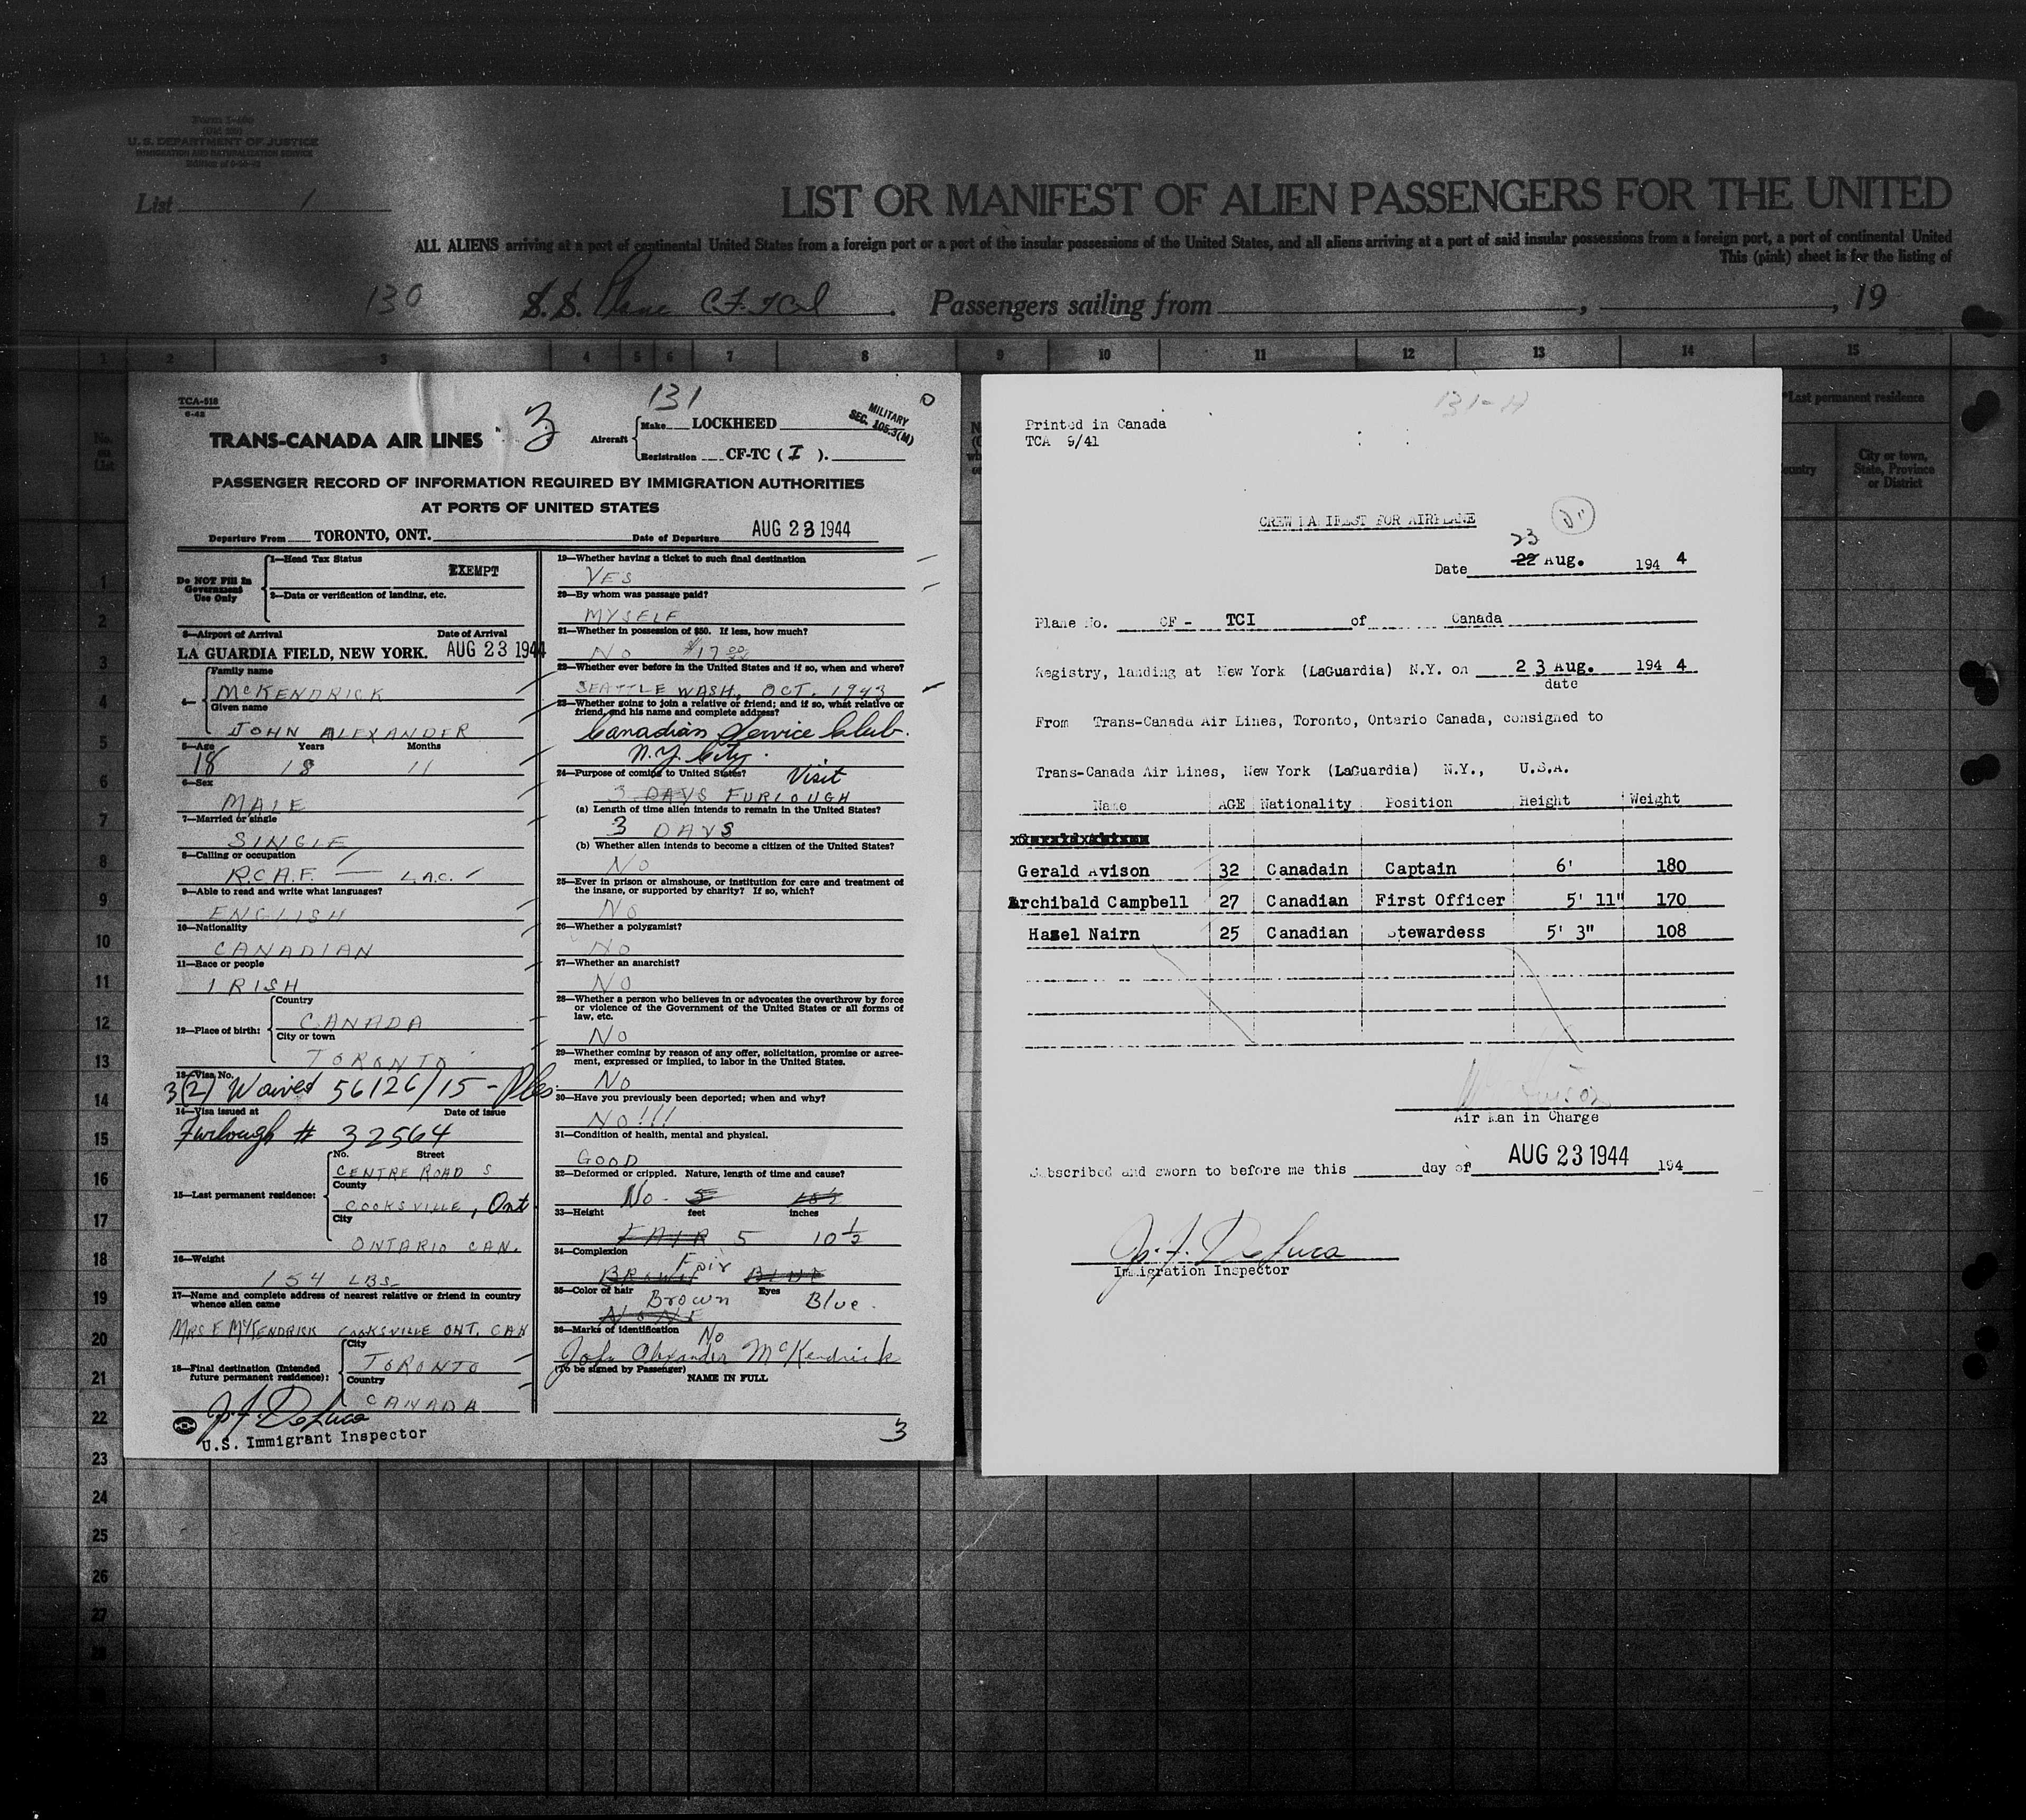 Form I-466
U. S. DEPARTMENT OF JUSTICE
IMMIGRATION AND NATURALIZATION SERVICE
List 1
LIST OR MANIFEST OF ALIEN PASSENGERS FOR THE UNITED
ALL ALIENS arriving at a port of continental United States from a foreign port or a port of the insular possessions of the United States, and all aliens arriving at a port of said insular possessions from a foreign port, a port of continental United
This (pink) sheet is for the listing of
130 S. S. Plane CF. TCI . Passengers sailing from , , 19
1 2 3 4 5 6 7 8 9 10 11 12 13 14 15
No. on List
*Last permanent residence
City or town, State, Province or District
1
2
3
4
5
6
7
8
9
10
11
12
13
14
15
16
17
18
19
20
21
22
23
24
25
26
27
TCA-518
6-42
131
3
MILITARY
SEC. 105.3(M)
TRANS-CANADA AIR LINES
Aircraft Make LOCKHEED
Registration CF-TC ( I ).
PASSENGER RECORD OF INFORMATION REQUIRED BY IMMIGRATION AUTHORITIES
AT PORTS OF UNITED STATES
Departure From TORONTO, ONT. Date of Departure AUG 23 1944
Do NOT Fill In Government Use Only
1—Head Tax Status EXEMPT
2—Data or verification of landing, etc.
3—Airport of Arrival Date of Arrival
LA GUARDIA FIELD, NEW YORK. AUG 23 1944
4— Family name
McKENDRICK
Given name
JOHN ALEXANDER
5—Age Years Months
18 18 11
6—Sex
MALE
7—Married or single
SINGLE
8—Calling or occupation
R.C.A.F. — L.A.C.
9—Able to read and write what languages?
ENGLISH
10—Nationality
CANADIAN
11—Race or people
IRISH
12—Place of birth: Country
CANADA
City or town
TORONTO
13—Visa No.
3(2) Waived 56126/15 -
14—Visa issued at Date of issue
Furlough # 32564
15—Last permanent residence: No. Street
CENTRE ROAD S
County
COOKSVILLE, Ont
City
ONTARIO CAN.
16—Weight
154 LBS
17—Name and complete address of nearest relative or friend in country whence alien came
MRS F McKENDRICK COOKSVILLE ONT. CAN
18—Final destination (Intended future permanent residence): City
TORONTO
Country
CANADA
J. F. DeLuca
U.S. Immigrant Inspector
19—Whether having a ticket to such final destination
YES
20—By whom was passage paid?
MYSELF
21—Whether in possession of $50. If less, how much?
NO $17 00
22—Whether ever before in the United States and if so, when and where?
SEATTLE WASH, OCT. 1943
23—Whether going to join a relative or friend; and if so, what relative or
friend, and his name and complete address?
Canadian Service Club.
N.Y. City.
24—Purpose of coming to United States? Visit
3 DAYS FURLOUGH
(a) Length of time alien intends to remain in the United States?
3 DAYS
(b) Whether alien intends to become a citizen of the United States?
NO
25—Ever in prison or almshouse, or institution for care and treatment of
the insane, or supported by charity? If so, which?
NO
26—Whether a polygamist?
NO
27—Whether an anarchist?
NO
28—Whether a person who believes in or advocates the overthrow by force
or violence of the Government of the United States or all forms of
law, etc.
NO
29—Whether coming by reason of any offer, solicitation, promise or agree-
ment, expressed or implied, to labor in the United States.
NO
30—Have you previously been deported; when and why?
NO!!!
31—Condition of health, mental and physical.
GOOD
32—Deformed or crippled. Nature, length of time and cause?
No. 5 10½
33—Height feet inches
FAIR 5 10 ½
34—Complexion Fair
BROWN BLUE
35—Color of hair Eyes
Brown Blue.
NONE
36—Marks of identification No
John Alexander McKendrick
(To be signed by Passenger)
NAME IN FULL
3
131-A
Printed in Canada
TCA 9/41
CREW MANIFEST FOR AIRPLANE
23
Date 22 Aug. 194 4
Plane No. CF - TCI of Canada
Registry, landing at New York (LaGuardia) N.Y. on 2 3 Aug. 194 4
date
From Trans-Canada Air Lines, Toronto, Ontario Canada, consigned to
Trans-Canada Air Lines, New York (LaGuardia) N.Y., U.S.A.
Name AGE Nationality Position Height Weight
Gerald Avison 32 Canadain Captain 6' 180
Archibald Campbell 27 Canadian First Officer 5' 11" 170
Hazel Nairn 25 Canadian Stewardess 5' 3" 108
Air Man in Charge
Subscribed and sworn to before me this day of AUG 23 1944 194
J. F. DeLuca
Immigration Inspector